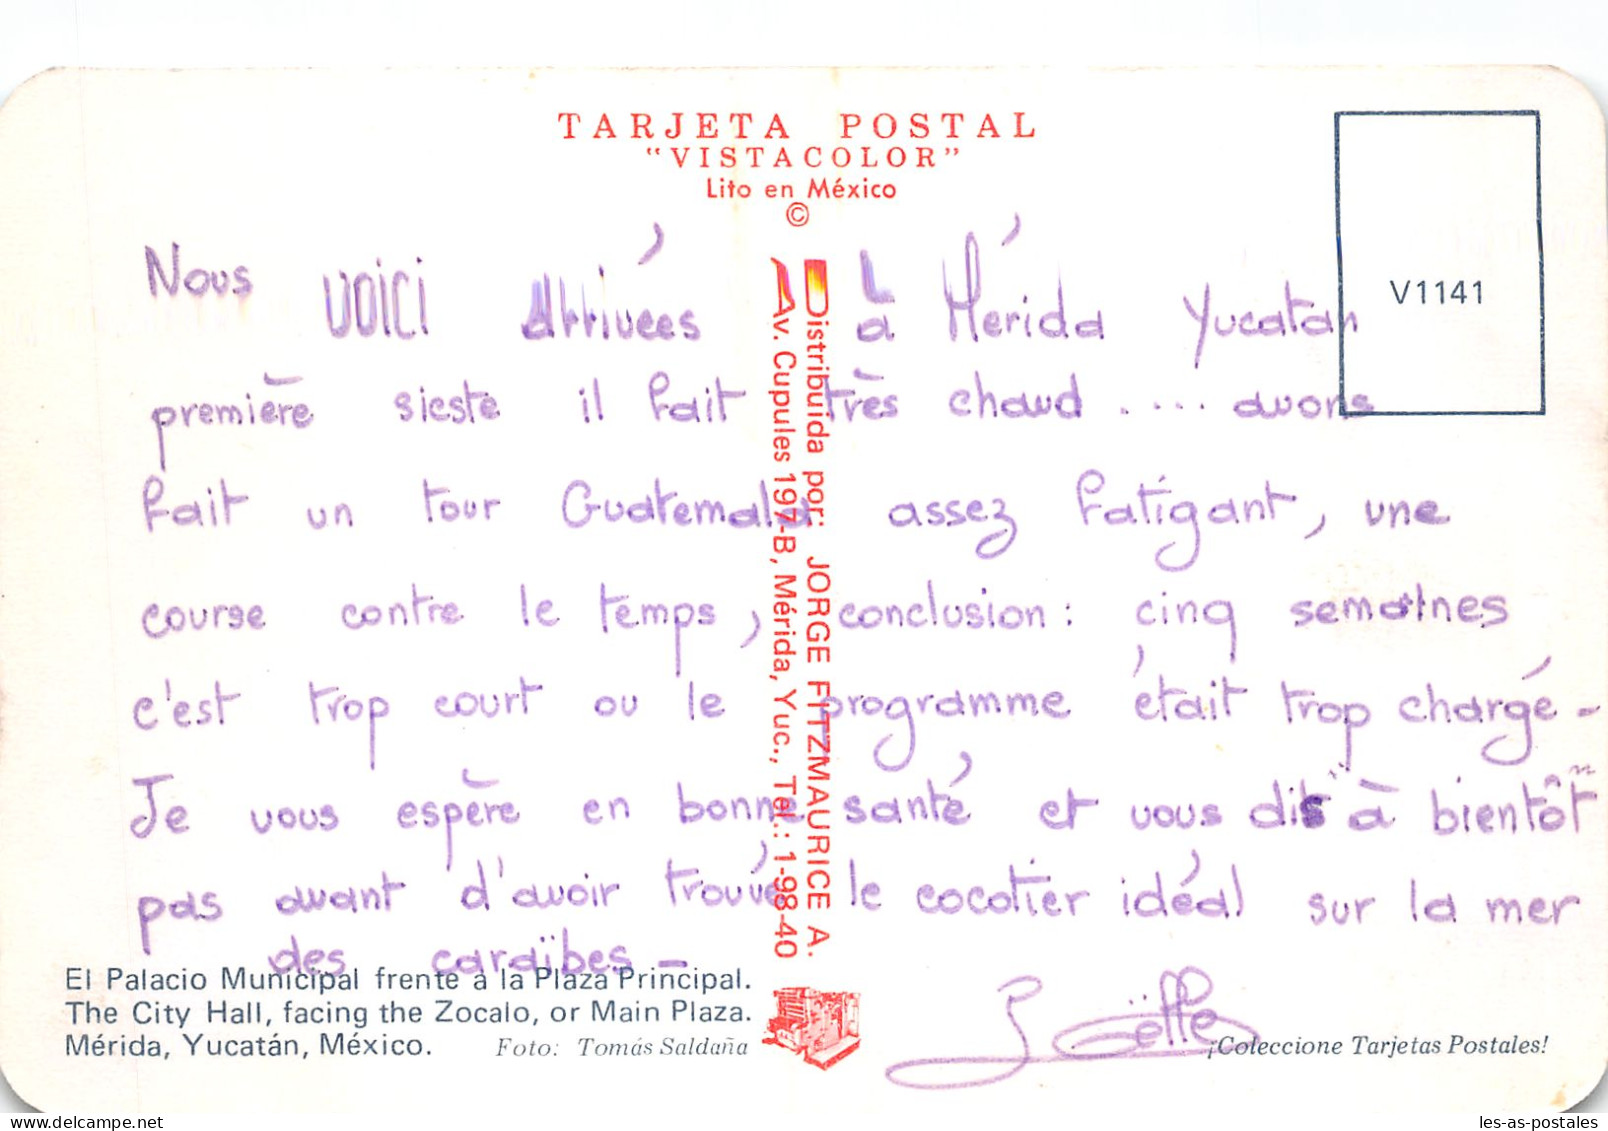 TARJETA POSTAL
"VISTACOLOR"
Lito en México
©
V1141
Nous voici arrivées à Mérida Yucatan
première sieste il fait très chaud .... avons
fait un tour Guatemala assez fatigant, une
course contre le temps, conclusion : cinq semaines
c'est trop court ou le programme était trop chargé -
Je vous espère en bonne santé et vous dis "à bientôt"
pas avant d'avoir trouvé le cocotier idéal sur la mer
des caraïbes -
Joëlle
Distribuida por: JORGE FITZMAURICE A.
Av. Cupules 197-B, Mérida, Yuc., Tel.: 1-98-40
El Palacio Municipal frente a la Plaza Principal.
The City Hall, facing the Zocalo, or Main Plaza.
Mérida, Yucatán, México. Foto: Tomás Saldaña
¡Coleccione Tarjetas Postales!
les-as-postales